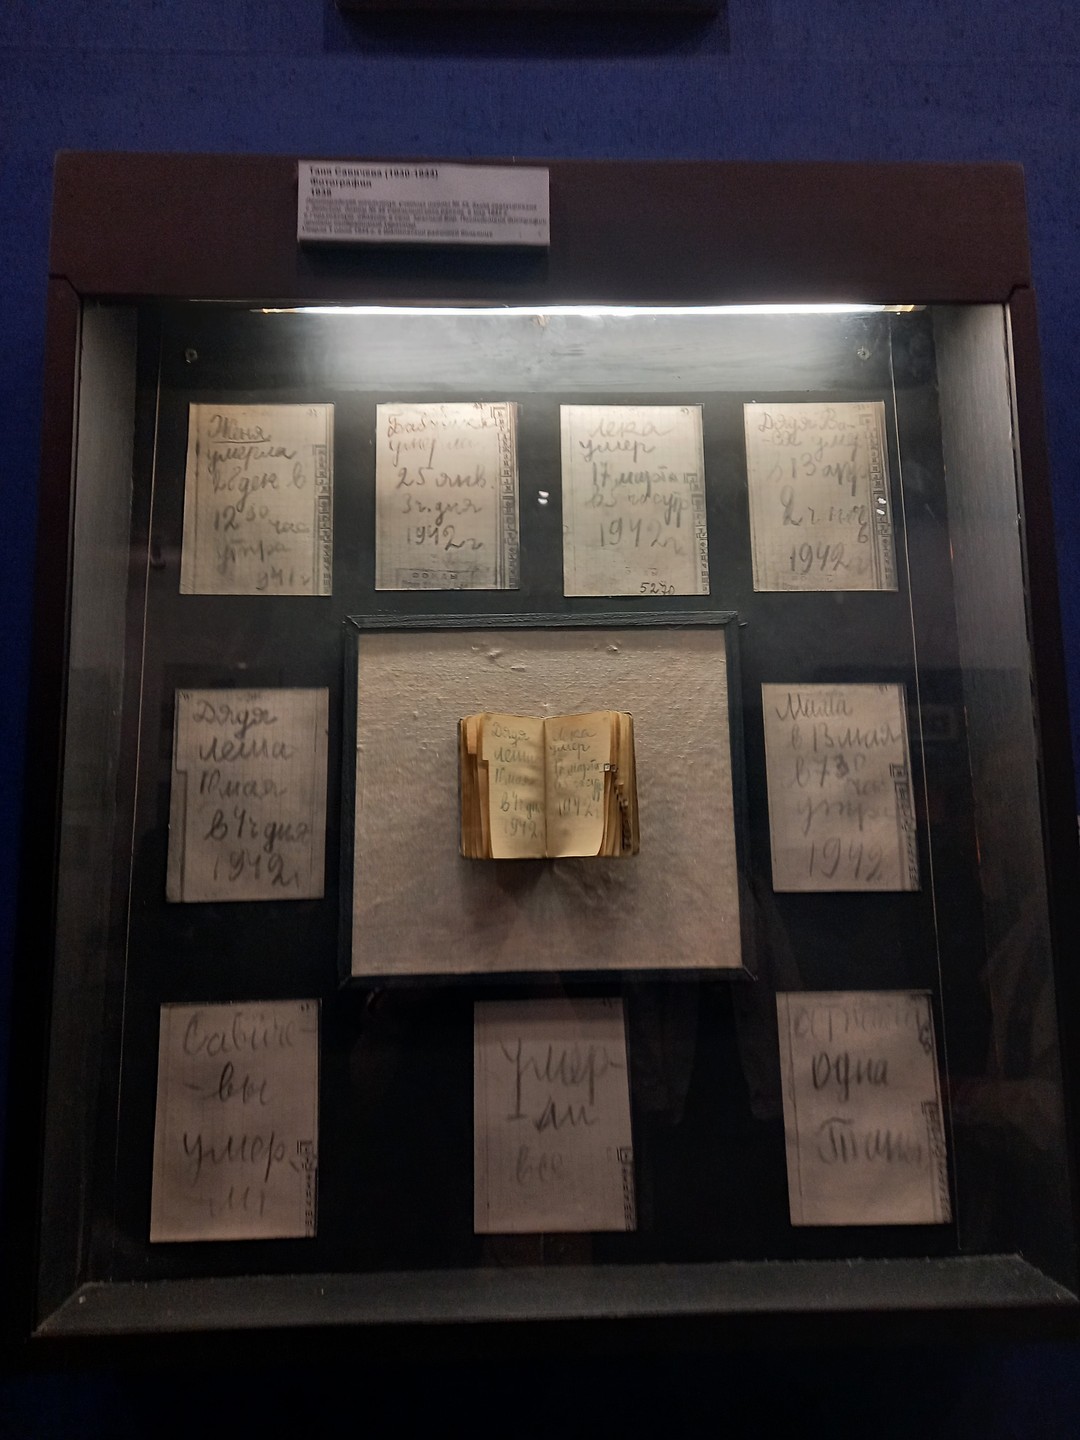 Таня Савичева (1930-1944)
Фотография
1938
Женя
умерла
28 дек в
12 30 час
утра
1941 г
Бабушка
умерла
25 янв.
3 ч. дня
1942 г
Лека
умер
17 марта
в 5 час утр
1942 г
5270
Дядя Ва-
-ся умер
в 13 апр
2 ч ночь
1942 г
Дядя
Леша
10 мая
в 4 ч дня
1942 г
Дядя
Леша
10 мая
в 4 ч дня
1942
Лека
умер
17 марта
в 5 час утр
1942 г
Мама
в 13 мая
в 7 30
час
утра
1942
Савиче-
-вы
умер
ли
Умер-
ли
все
Осталась
одна
Таня